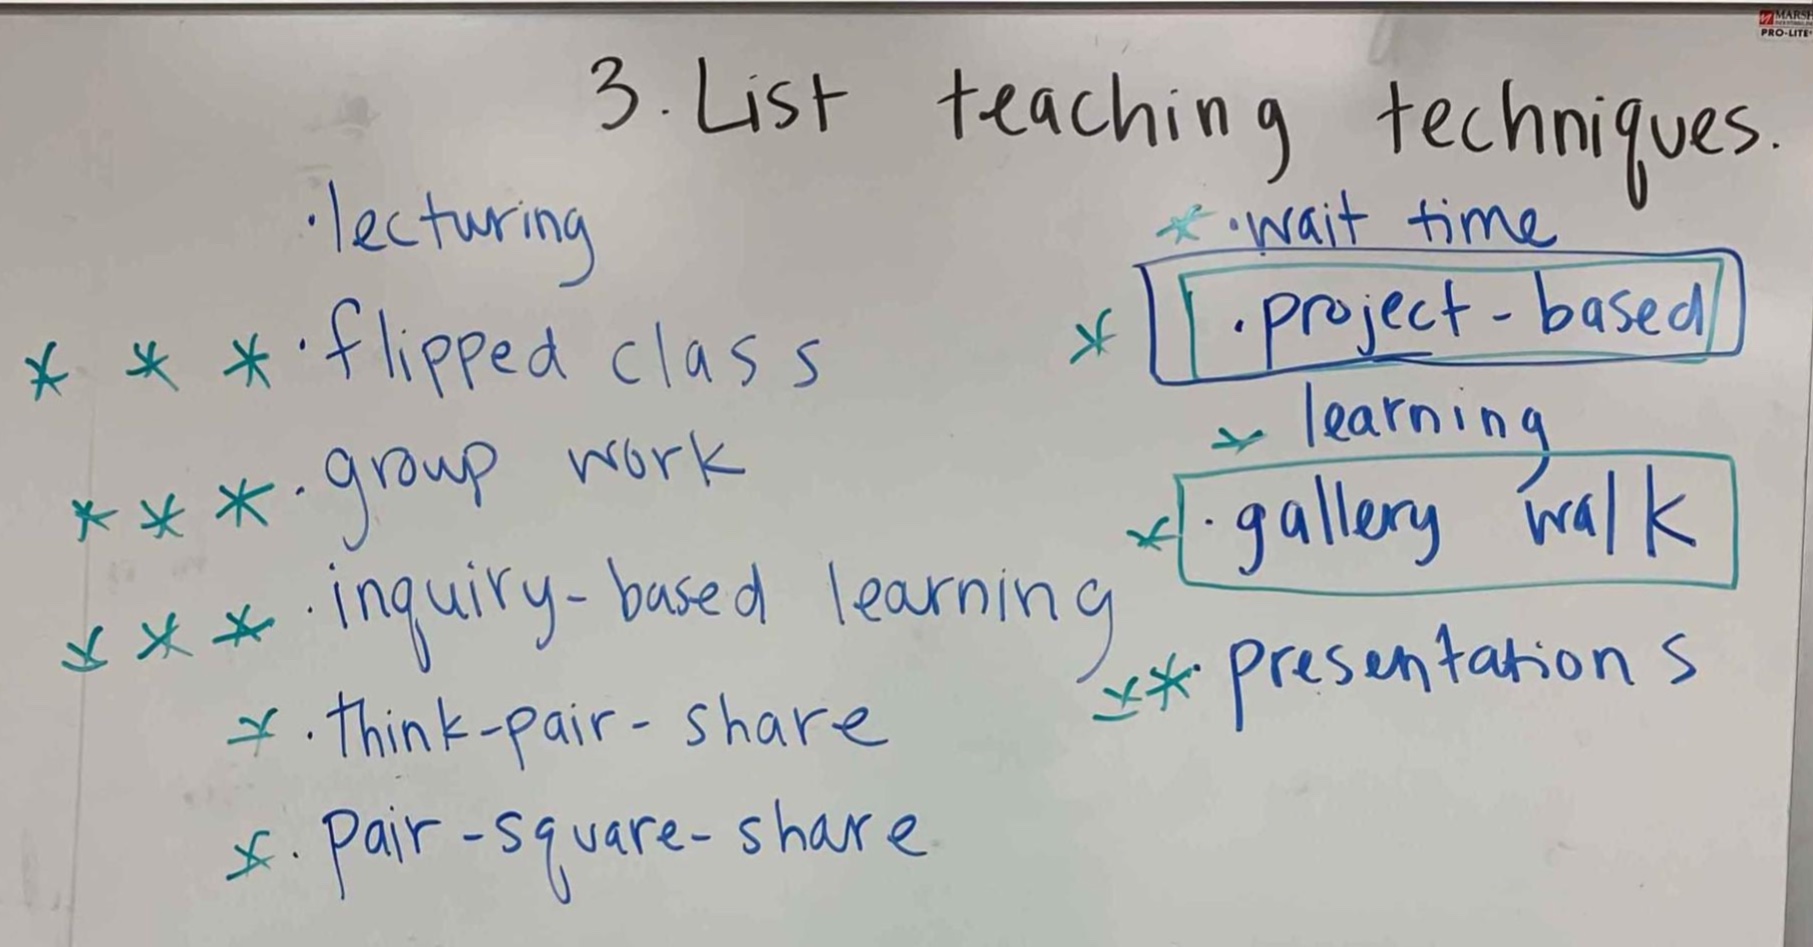 MARSH
PRO-LITE
3. List teaching techniques.
· lecturing
* * * · flipped class
* * * · group work
* * * · inquiry-based learning
* · think-pair-share
* · pair-square-share
* · wait time
* · project-based
* learning
* · gallery walk
* * · presentations